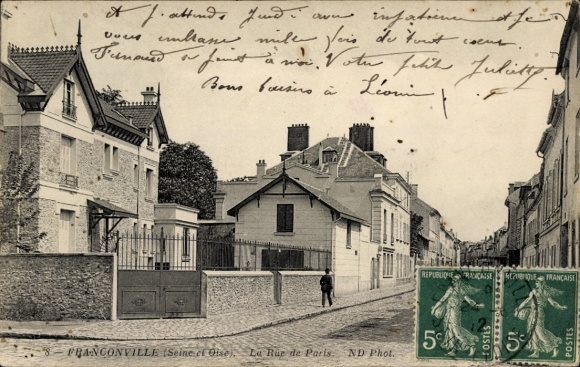 J'attends Jeudi avec impatience et je
vous embrasse mille fois de tout coeur
Fernand se joint à moi. Votre petite Juliette
Bons baisers à Léonie
8 - FRANCONVILLE (Seine et Oise). La Rue de Paris. ND Phot.
REPUBLIQUE FRANÇAISE
5c
REPUBLIQUE FRANÇAISE
5c